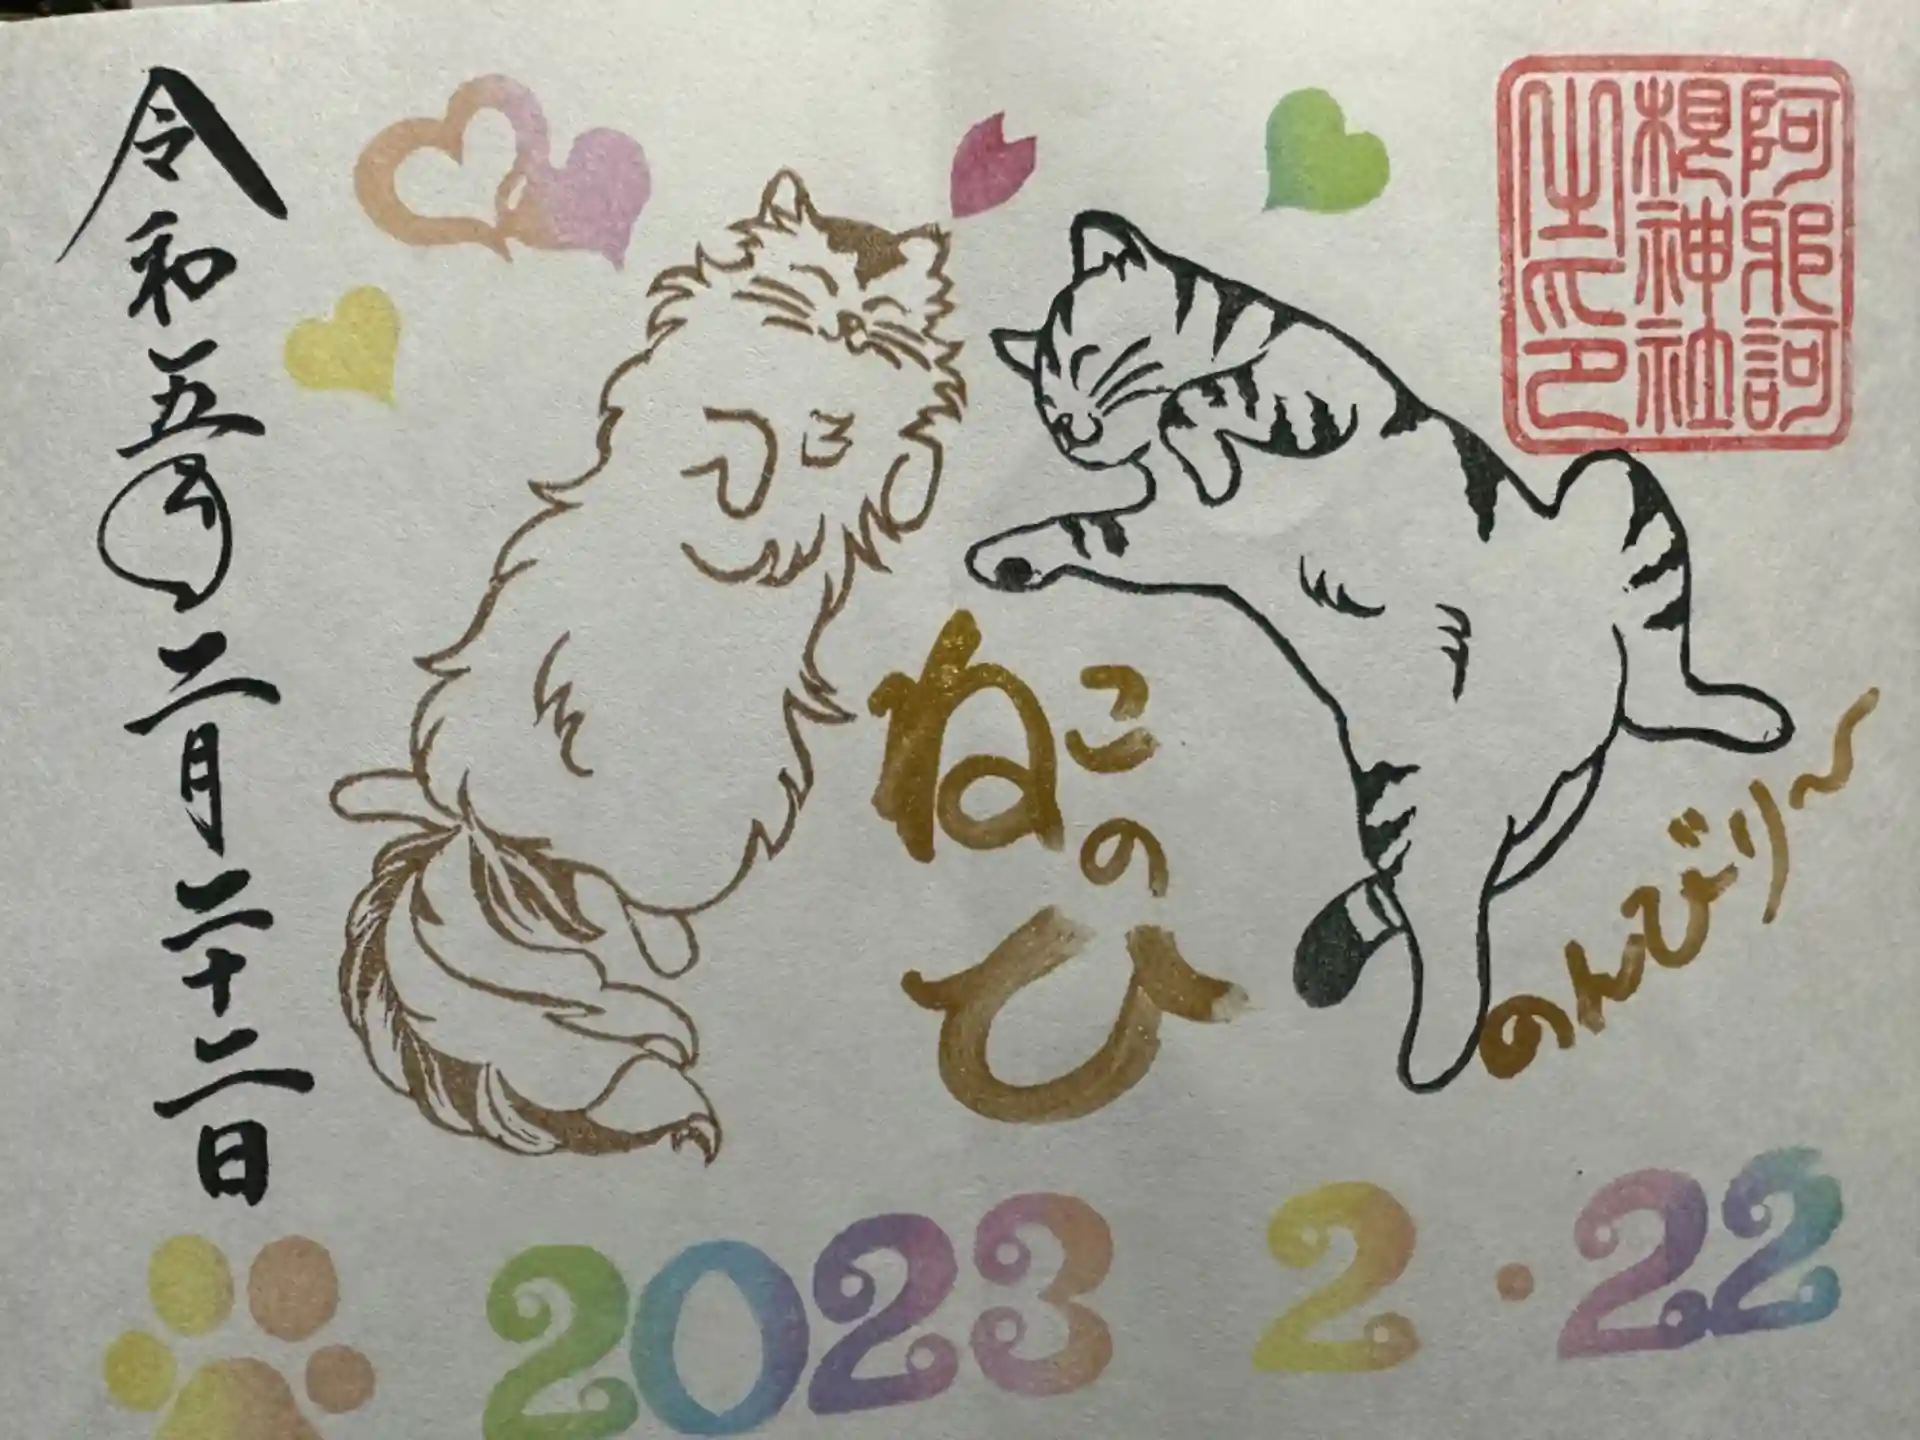 阿邪訶
根神社
之印
ねこのひ
のんびり〜
令和五年二月二十二日
2023 2・22